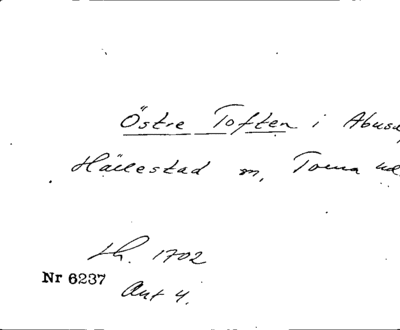 Östre Toften i Abusa
Hällestad sn, Torna hd
Lh. 1702
Nr 6237
Ant 4.